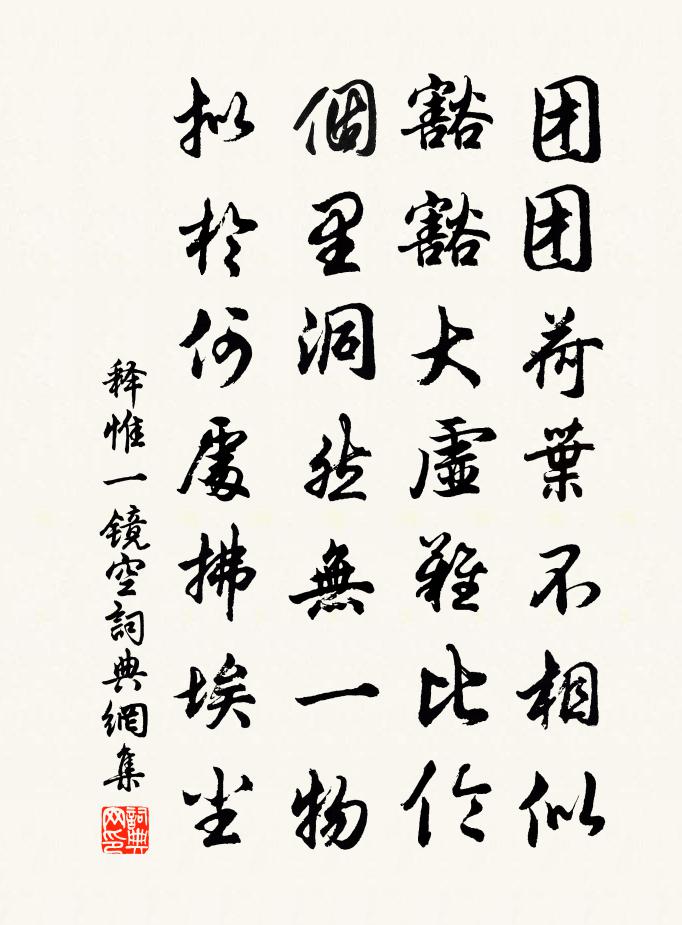 团团荷葉不相似
豁豁大虛難比伦
個里洞然無一物
拟於何處拂埃尘
释惟一镜空詞典網集
詞典网印